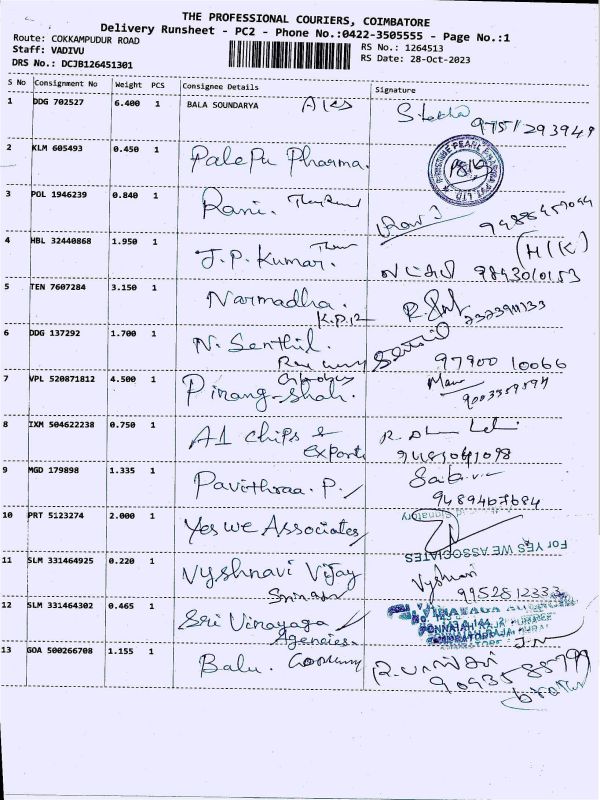 THE PROFESSIONAL COURIERS, COIMBATORE
Delivery Runsheet - PC2 - Phone No.:0422-3505555 - Page No.:1
Route: COKKAMPUDUR ROAD
Staff: VADIVU
DRS No.: DCJB126451301
RS No.: 1264513
RS Date: 28-Oct-2023
S No Consignment No Weight PCS Consignee Details Signature
1 DDG 702527 6.400 1 BALA SOUNDARYA
2 KLM 605493 0.450 1 Palepu Pharma.
3 POL 1946239 0.840 1 Rani.
4 HBL 32440868 1.950 1 J.P. Kumar. (H/K) 9843010153
5 TEN 7607284 3.150 1 Narmadha.
6 DDG 137292 1.700 1 N. Senthil. 97900 10066
7 VPL 520871812 4.500 1
8 IXM 504622238 0.750 1 A1 chips & Exports
9 MGD 179898 1.335 1 Pavithraa. P. 9489467684
10 PRT 5123274 2.000 1 Yes We Associates For YES WE ASSOCIATES
11 SLM 331464925 0.220 1 Vyshnavi Vijay 9952812333
12 SLM 331464302 0.465 1 Sri Vinayaga Agencies. J.N
13 GOA 500266708 1.155 1 Balu.